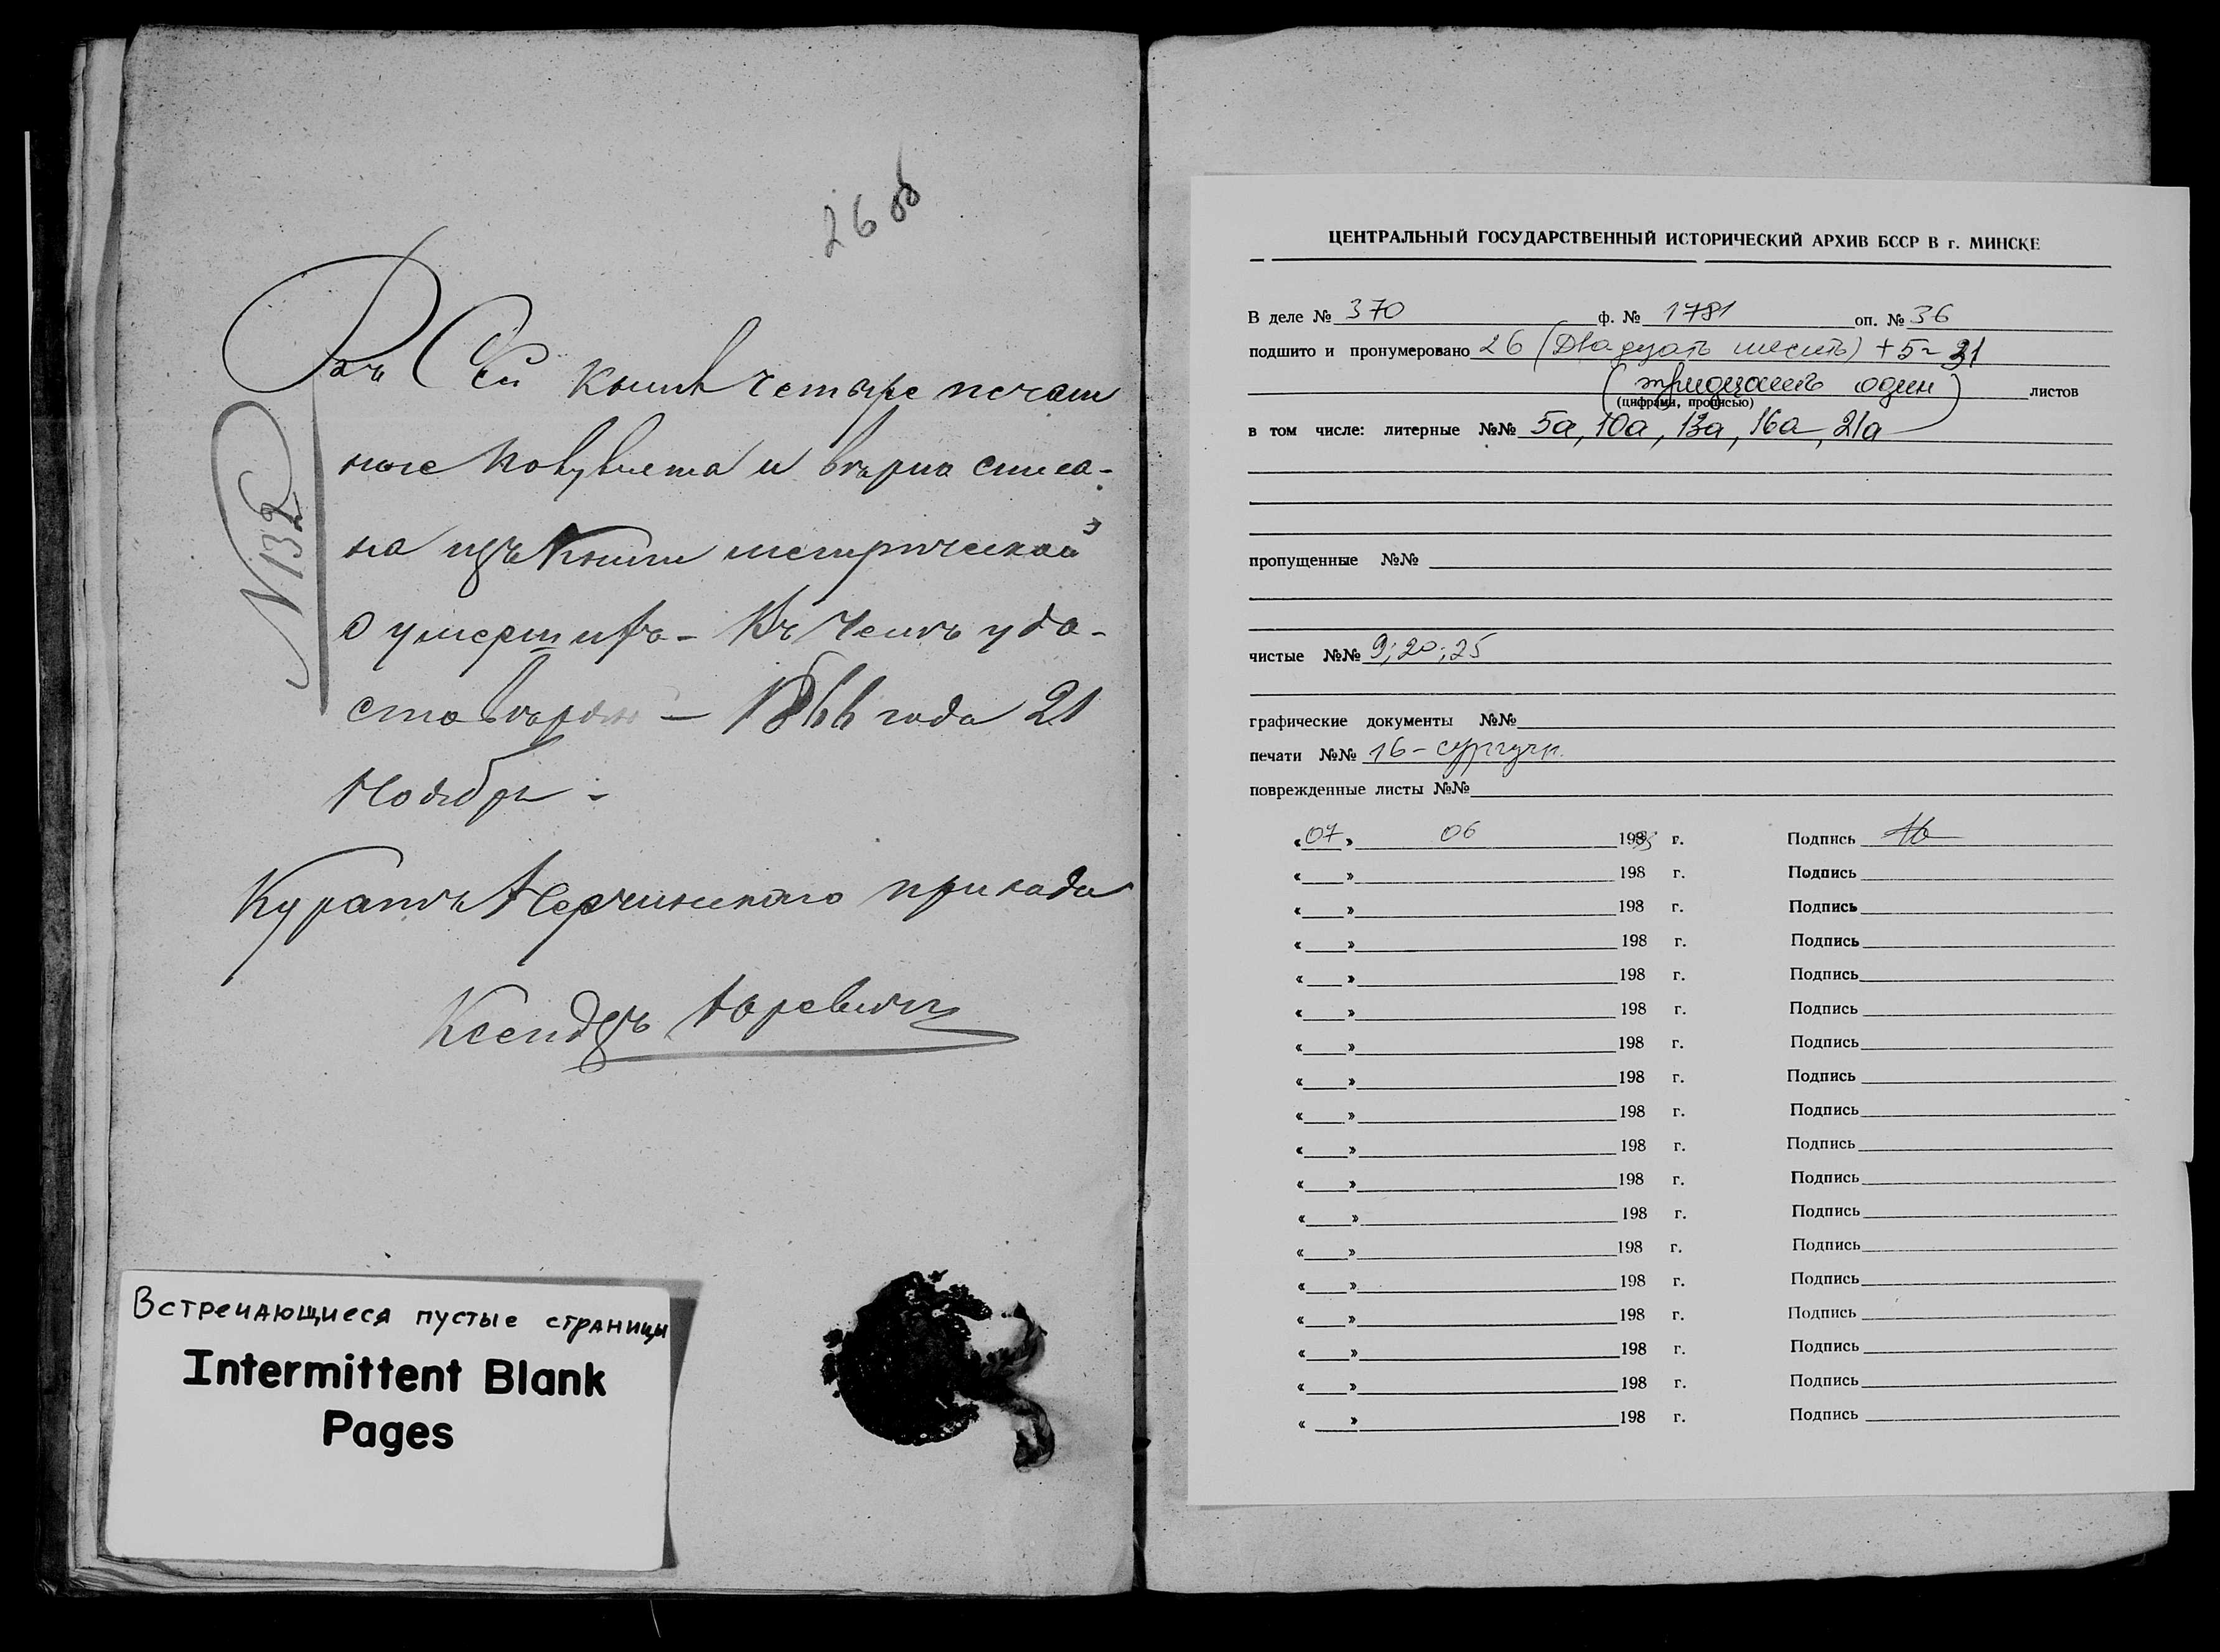 26 об
Въ Сей книгѣ четыре печат
ные полулиста и вѣрно списа-
на изъ Книги метрической
о умершихъ - Въ чемъ удо-
стовѣряю - 1866 года 21
Ноября -
N 132
Куратъ прихода
Ксендзъ
Встречающиеся пустые страницы
Intermittent Blank
Pages
ЦЕНТРАЛЬНЫЙ ГОСУДАРСТВЕННЫЙ ИСТОРИЧЕСКИЙ АРХИВ БССР В г. МИНСКЕ
В деле № 370 ф. № 1781 оп. № 36
подшито и пронумеровано 26 (Двадцать шесть) + 5 = 31
(тридцать один) листов
(цифрами, прописью)
в том числе: литерные №№ 5а, 10а, 13а, 16а, 21а
пропущенные №№
чистые №№ 9; 20; 25
графические документы №№
печати №№ 16 - сургучн.
поврежденные листы №№
« 07 » 06 1993 г. Подпись
« » 198 г. Подпись
« » 198 г. Подпись
« » 198 г. Подпись
« » 198 г. Подпись
« » 198 г. Подпись
« » 198 г. Подпись
« » 198 г. Подпись
« » 198 г. Подпись
« » 198 г. Подпись
« » 198 г. Подпись
« » 198 г. Подпись
« » 198 г. Подпись
« » 198 г. Подпись
« » 198 г. Подпись
« » 198 г. Подпись
« » 198 г. Подпись
« » 198 г. Подпись